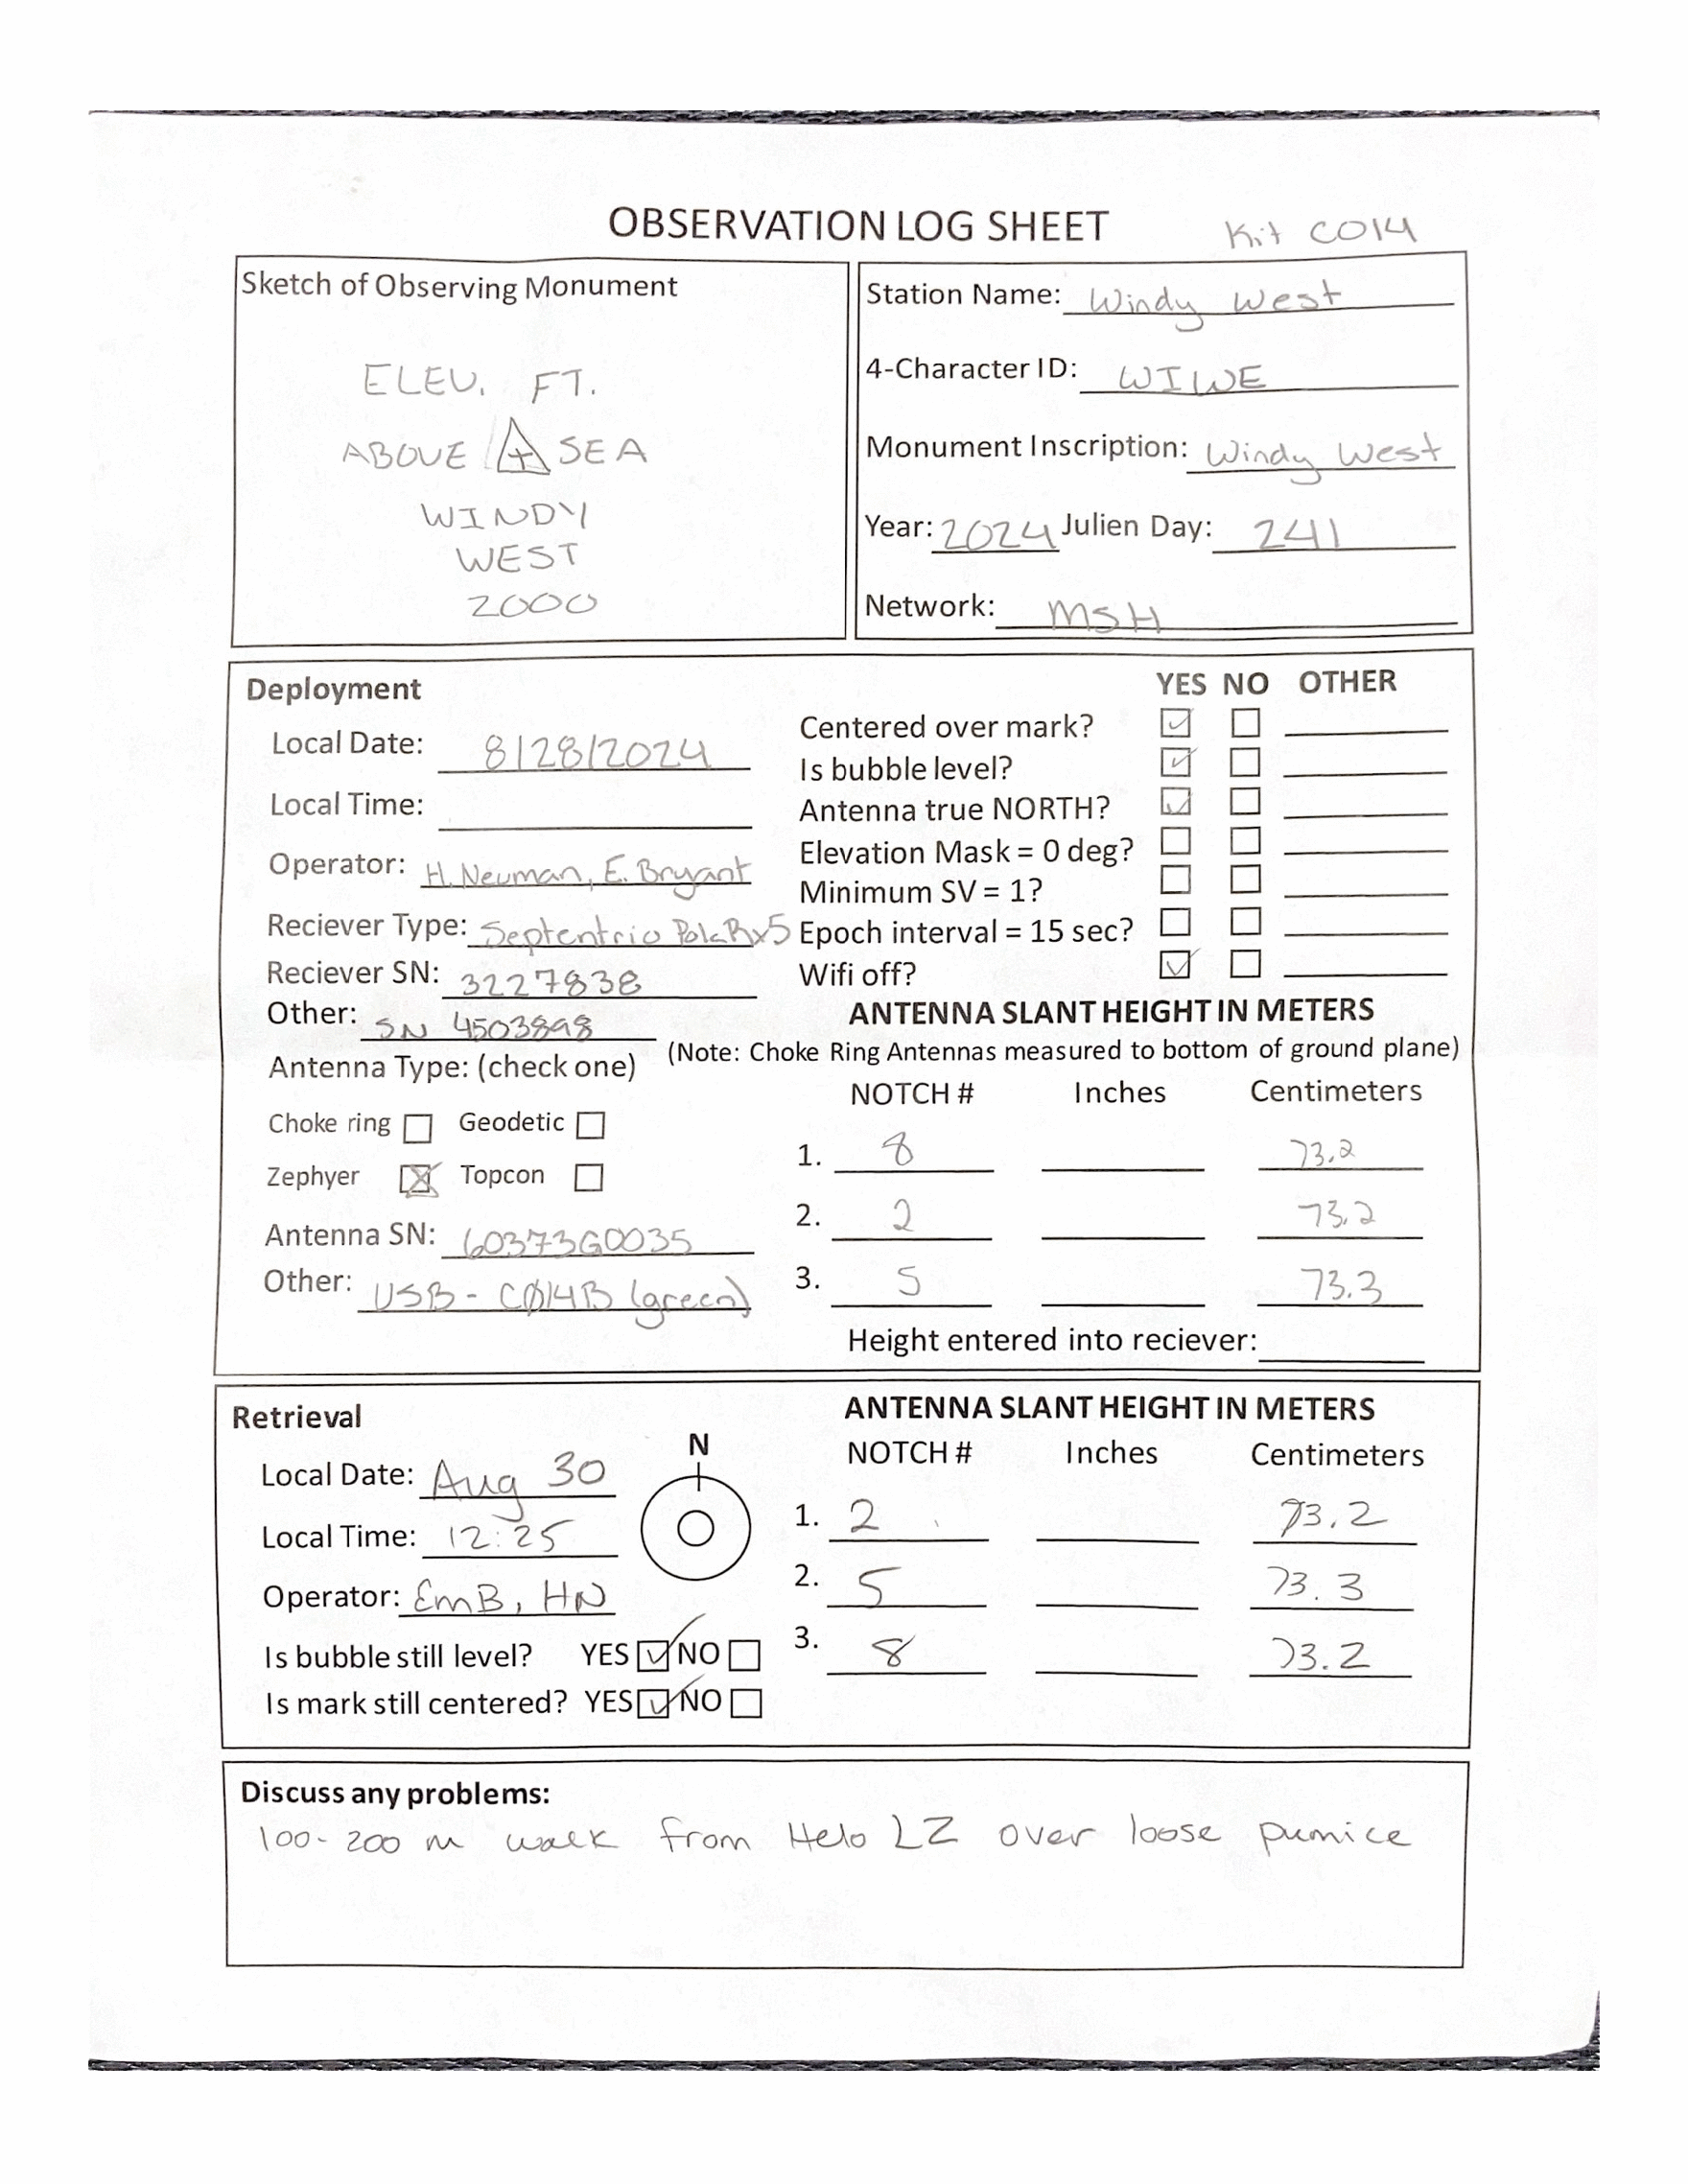 OBSERVATION LOG SHEET Kit C014
Sketch of Observing Monument
ELEV. FT.
ABOVE SEA
WINDY
WEST
2000
Station Name: Windy West
4-Character ID: WIWE
Monument Inscription: Windy West
Year: 2024 Julien Day: 241
Network: MSH
Deployment
Local Date: 8/28/2024
Local Time:
Operator: H. Neuman, E. Bryant
Reciever Type: Septentrio PolaRx5
Reciever SN: 3227838
Other: SN 4503898
Antenna Type: (check one)
Choke ring Geodetic
Zephyer Topcon
Antenna SN: 60373G0035
Other: USB - CØ14B (green)
YES NO OTHER
Centered over mark?
Is bubble level?
Antenna true NORTH?
Elevation Mask = 0 deg?
Minimum SV = 1?
Epoch interval = 15 sec?
Wifi off?
ANTENNA SLANT HEIGHT IN METERS
(Note: Choke Ring Antennas measured to bottom of ground plane)
NOTCH # Inches Centimeters
1. 8 73.2
2. 2 73.2
3. 5 73.3
Height entered into reciever:
Retrieval
Local Date: Aug 30
Local Time: 12:25
Operator: EmB, HN
Is bubble still level? YES NO
Is mark still centered? YES NO
N
ANTENNA SLANT HEIGHT IN METERS
NOTCH # Inches Centimeters
1. 2 73.2
2. 5 73.3
3. 8 73.2
Discuss any problems:
100-200 m walk from Helo LZ over loose pumice